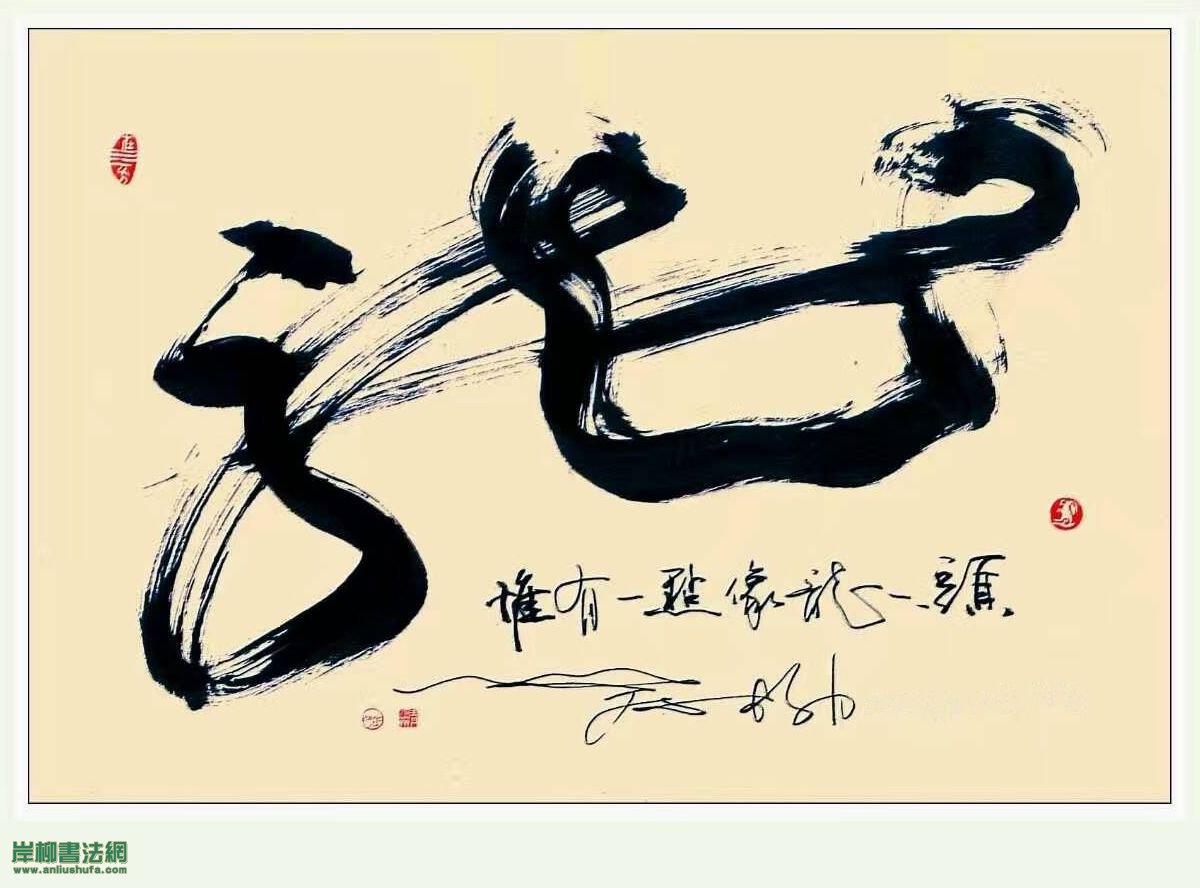 龍
惟有一點像龍一頭
岸柳書法網
www.anliushufa.com